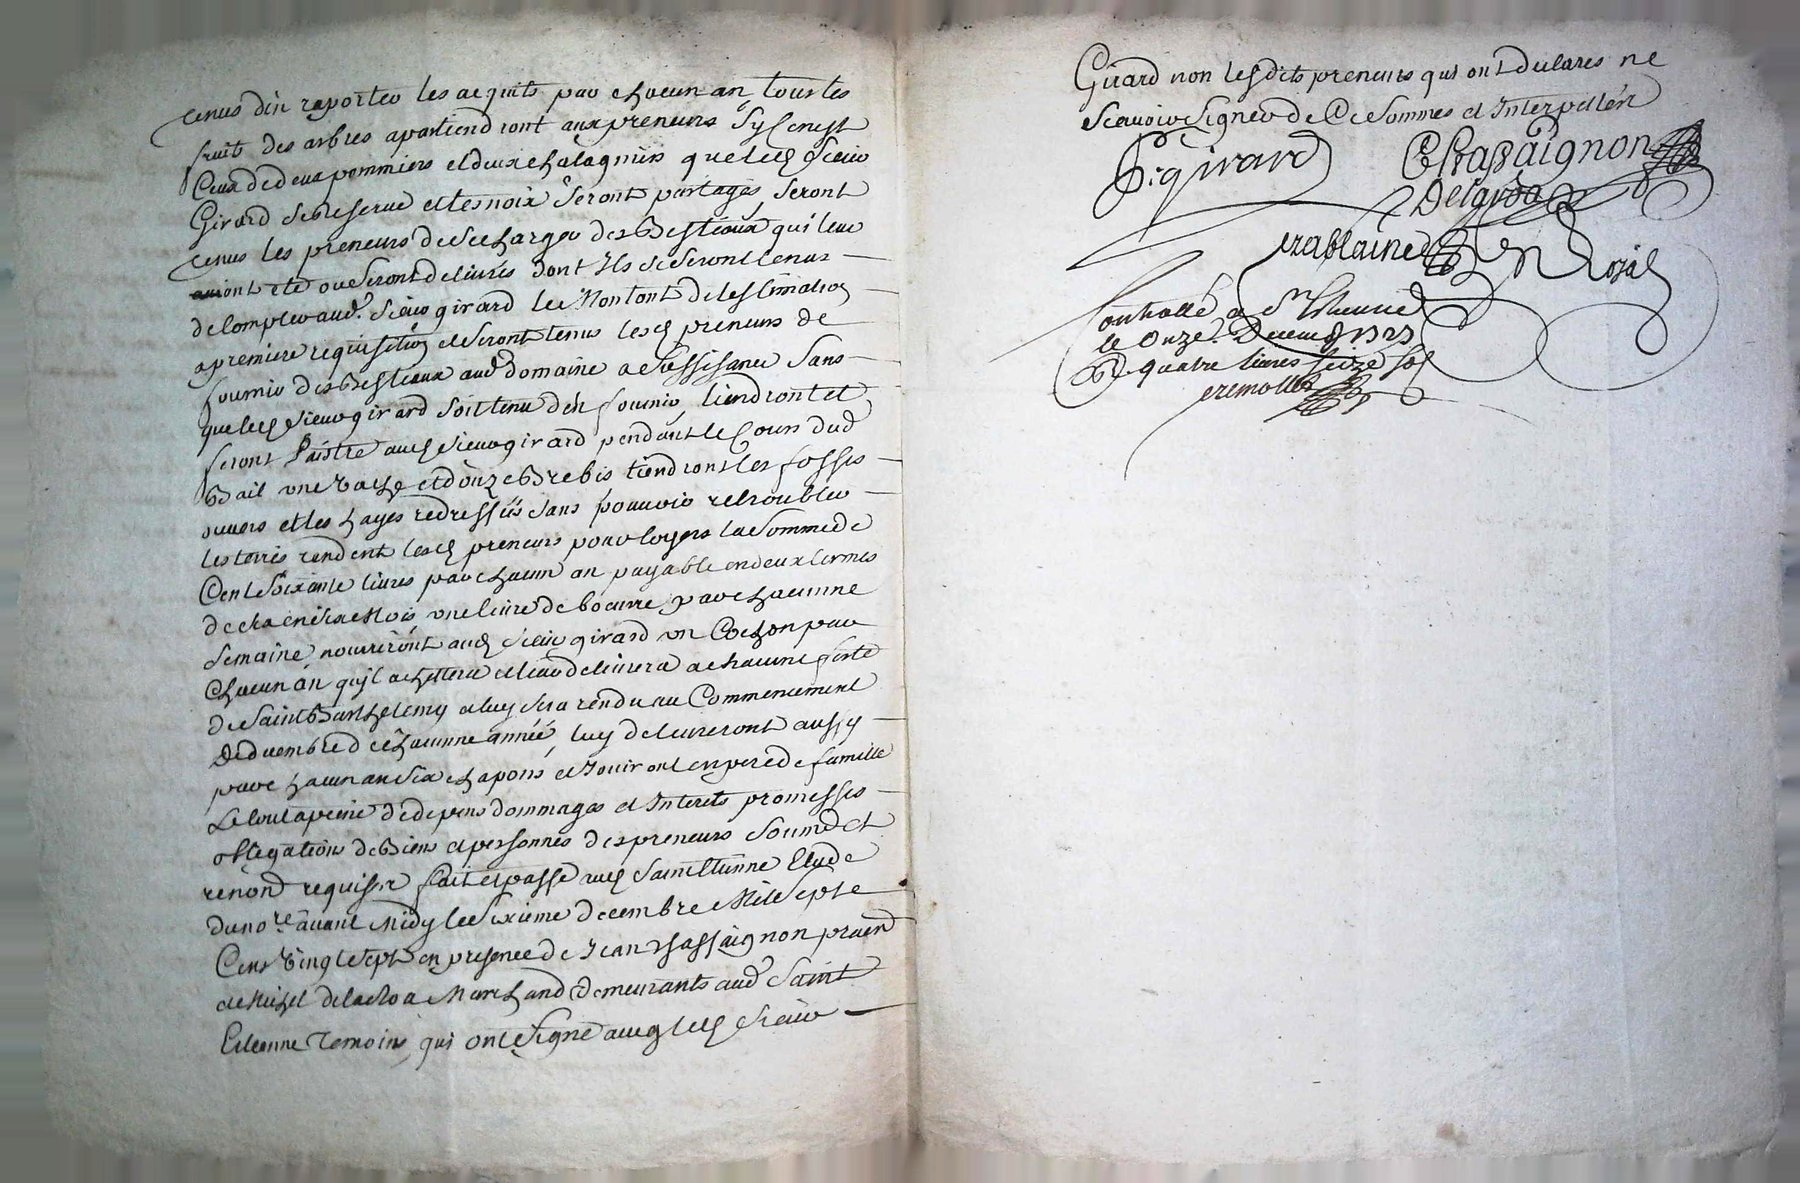 tenus din raporter les acquits par chacun an, tous les
fruit des arbres apartiendront aux preneurs Sy Cenest
Ceux de deux pommiers et deux chatagniers que led Sieur
Girard se reserve et les noix seront partagés, seront
tenus les preneurs de se charger des Bestiaux qui leur
auront eté ou seront delivrés dont Ils se seront tenus
de compter aud. Sieur girard le Montant de lestimaõn
a premiere requisition et seront tenus lesd preneurs de
fournir des Bestiaux aud domaine a suffisance sans
que led Sieur girard soit tenu den fournir, tiendront et
feront Paistre aud Sieur girard pendant le Cours dud
Bail une vache et douze Brebis tiendront les fossés
ouvers et les hayes redressées sans pouvoir retroubler
les terres rendent lesd preneurs pour loyers la somme de
Cent soixante livres par chacun an payable en deux termes
une livre de beurre par chacunne
Semaine, nourriront aud Sieur girard un Cochon par
Chacun an quil achettera et leur delivrera a chacune feste
de Saint Barthelemy et luy sera rendu au Commencement
De decembre de chacunne année, luy delivreront aussy
par chacun an six chapons et Jouiront en pere de famille
Le tout a peine de depens dommages et Interets promesses
obligations de Biens et personnes des preneurs soumõ et
renonõ requises fait et passé aud Saint Etienne Etude
du nore. avant Midy le Sixieme decembre Mile Sept
Cens Vingt Sept en presence de Jean Chassaignon pratn
et Michel delaroa Marchand demeurants aud Saint
Etienne Temoins qui ont signé avec led Sieur
Girard non lesdits preneurs qui ont declarés ne
Scavoir signer de Ce Sommes et Interpellés
P. girard Chassaignon
Delaroa
Controllé a St Etienne
le Onze. Decemb 1727
R quatre livres seize sols